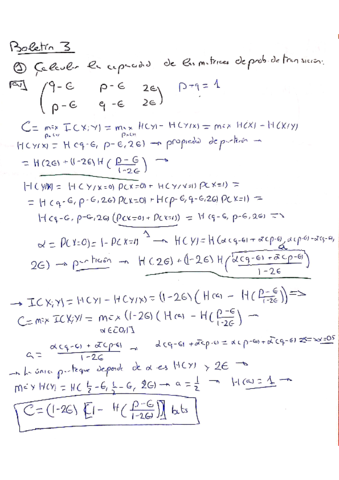 Boletín 3
① Calcular la capacidad de las matrices de prob. de transición.
(q-ϵ p-ϵ 2ϵ
p-ϵ q-ϵ 2ϵ) p+q=1
C= max I(X;Y) = max H(Y) - H(Y/X) = max H(X) - H(X/Y)
H(Y/X) = H(q-ϵ, p-ϵ, 2ϵ) → propiedad de partición →
= H(2ϵ) + (1-2ϵ) H(p-ϵ/1-2ϵ) →
= H(Y/X=0) P(X=0) + H(Y/X=1) P(X=1) =
= H(q-ϵ, p-ϵ, 2ϵ) P(X=0) + H(p-ϵ, q-ϵ, 2ϵ) P(X=1) =
H(q-ϵ, p-ϵ, 2ϵ) (P(X=0) + P(X=1)) = H(q-ϵ, p-ϵ, 2ϵ) ⇒
α = P(X=0) = 1 - P(X=1) → H(Y) = H(
2ϵ) → partición → H(2ϵ) + (1-2ϵ) H(α(q-ϵ) + ᾱ(p-ϵ)/1-2ϵ)
→ I(X,Y) = H(Y) - H(Y/X) = (1-2ϵ) (H(a) - H(p-ϵ/1-2ϵ)) ⇒
C = max I(X;Y) = max (1-2ϵ) (H(a) - H(p-ϵ/1-2ϵ)) →
α∈[0,1]
a = α(q-ϵ) + ᾱ(p-ϵ)/1-2ϵ → α(q-ϵ) + ᾱ(p-ϵ) = α(p-ϵ) + ᾱ(q-ϵ)
→ La única parte que depende de α es H(Y) y 2ϵ →
max H(Y) = H(½-ϵ, ½-ϵ, 2ϵ) → a = ½ → H(a) = 1 →
C = (1-2ϵ) [1 - H(p-ϵ/1-2ϵ)] bits